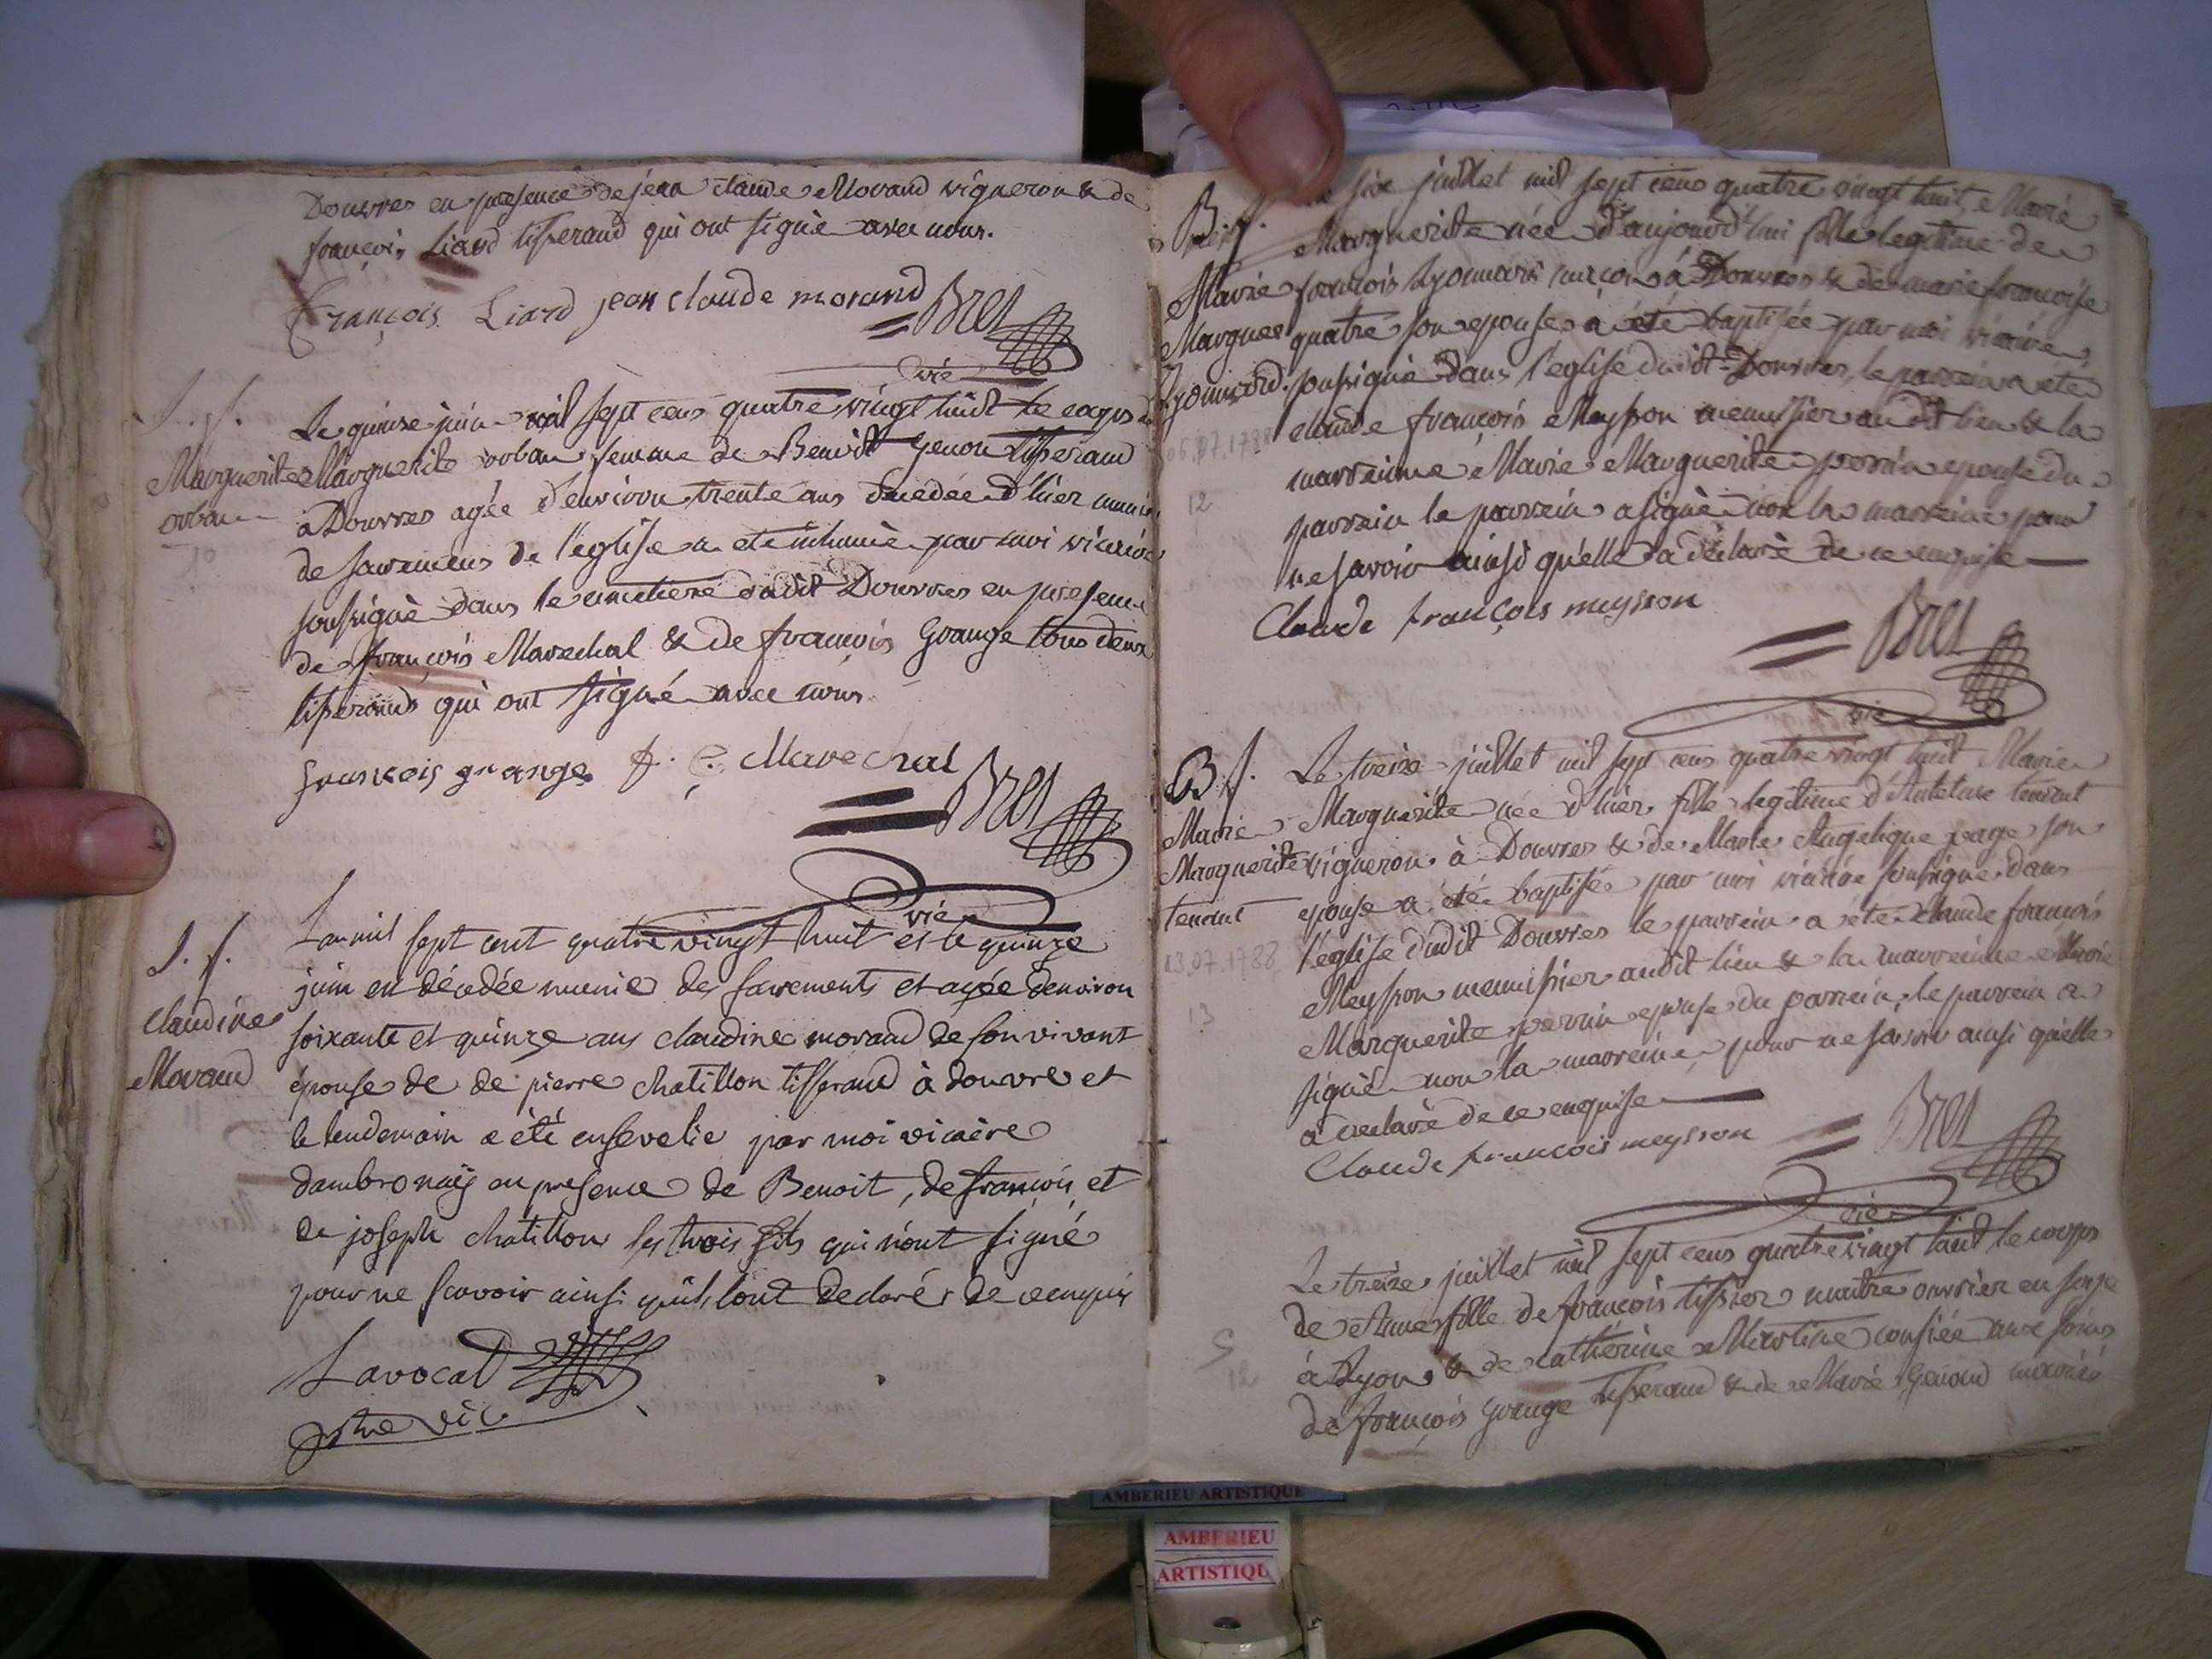 Douvres en presence de jean claude Morand vigneron & de
françois Liard tisserand qui ont signé avec nous.
François Liard jean claude morand Bret
vic
S. f.
Marguerite
orban
10
Le quinse juin mil sept cens quatre vingt huit le corps de
Marguerite orban femme de Benoit Genon tisserand
à Douvres agée d'environ trente ans décédée d'hier munie
de sacremens de l'eglise a été inhumée par moi vicaire
soussigné dans le cimetiere dudit Douvres en presence
de françois Marechal & de françois Grange tous deux
tisserands qui ont signé avec nous.
franscois grange f. C. Marechal
Bret
vic
S. f.
Claudine
Morand
Lan mil sept cent quatre vingt huit et le quinze
juin est décédée munie des sacrements et agée denviron
soixante et quinze ans claudine morand de son vivant
épouse de de pierre chatillon tisserand à douvre et
le lendemain a été ensevelie par moi vicaire
dambronay en presence de Benoit, de françois et
de joseph chatillon ses trois fils qui n'ont signé
pour ne scavoir ainsi quils l'ont declarés de ce enquis
Lavocat
ptre vic
B. f.
Marie
Marguerite
Lyonnard.
06.07.1788
12
Le six juillet mil sept cens quatre vingt huit, Marie
Marguerite née d'aujourd'hui fille legitime de
françois Lyonnard à Douvres & de marie françoise
quatre son epouse a été baptisée par moi vicaire
soussigné dans l'eglise dudit Douvres, le parrein a été
claude françois Meysson menuisier audit lieu & la
marreinne Marie Marguerite perrin epouse du
parrein le parrein a signé non la marreine pour
ne savoir ainsi qu'elle a déclaré de ce enquise
Claude françois meysson
Bret
vic
B. f.
Marie
Marguerite
tenant
13.07.1788
13
Le treize juillet mil sept cens quatre vingt huit Marie
Marguerite née d'hier fille legitime d'Antelme tenant
vigneron à Douvres & de Marie Angelique page son
epouse a été baptisée par moi vicaire soussigné dans
l'eglise dudit Douvres le parrein a été claude françois
Meysson menuisier audit lieu & la marreinne Marie
Marguerite perrin epouse du parrein, le parrein a
signé non la marreine pour ne savoir ainsi qu'elle
a declaré de ce enquise
Claude francois meysson
Bret
vic
Le treize juillet mil sept cens quatre vingt huit le corps
de Anne fille de françois tissier maitre ouvrier en soye
à Lyon & de catherine Martine confiée aux soins
de françois Grange tisserand & de Marie Genoud mariés
S
12
AMBERIEU ARTISTIQUE
AMBERIEU
ARTISTIQU